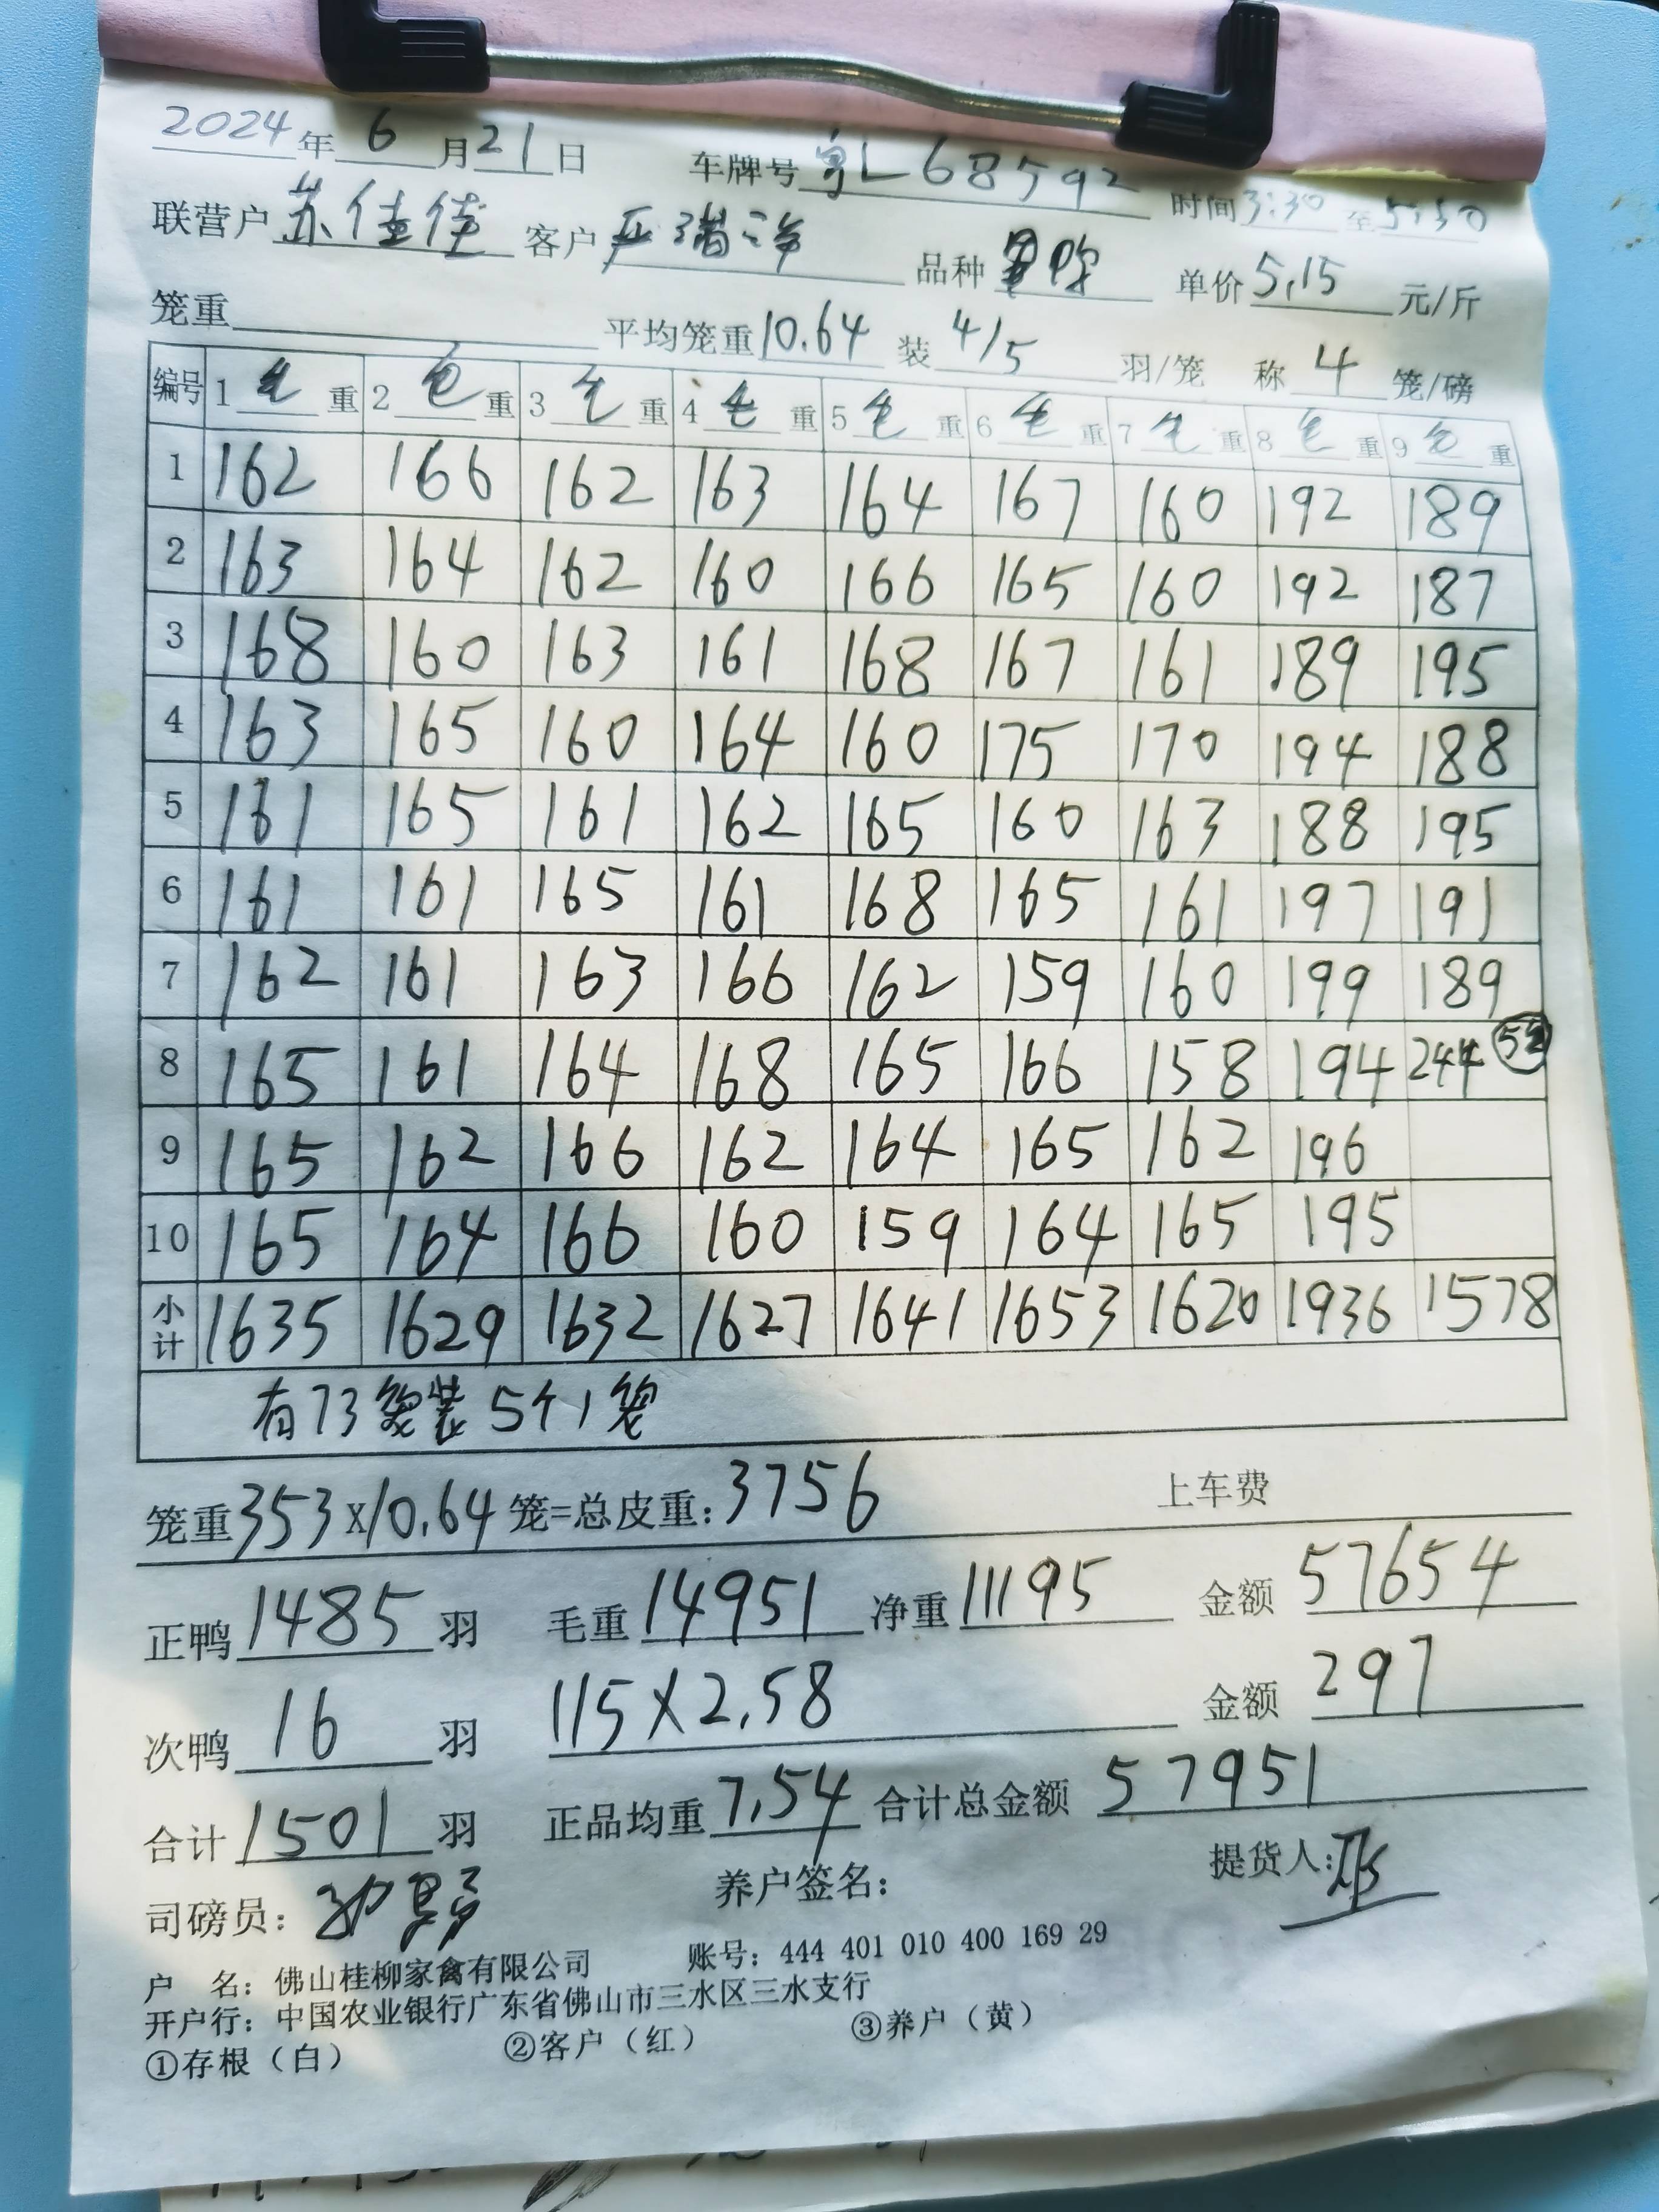 2024年6月21日 车牌号粤L68592 时间3:30至5:30
联营户苏佳佳 客户 品种 单价5.15元/斤
笼重 平均笼重10.64 装4/5羽/笼 称4笼/磅
编号 1毛重 2毛重 3毛重 4毛重 5毛重 6毛重 7毛重 8毛重 9毛重
1 162 166 162 163 164 167 160 192 189
2 163 164 162 160 166 165 160 192 187
3 168 160 163 161 168 167 161 189 195
4 163 165 160 164 160 175 170 194 188
5 161 165 161 162 165 160 163 188 195
6 161 161 165 161 168 165 161 197 191
7 162 161 163 166 162 159 160 199 189
8 165 161 164 168 165 166 158 194 244 5笼
9 165 162 166 162 164 165 162 196
10 165 164 166 160 159 164 165 195
小计 1635 1629 1632 1627 1641 1653 1620 1936 1578
有73笼装5个1笼
笼重353X10.64笼=总皮重:3756 上车费
正鸭1485羽 毛重14951 净重11195 金额57654
次鸭16羽 115X2.58 金额297
合计1501羽 正品均重7.54 合计总金额57951
司磅员: 养户签名: 提货人:
户 名:佛山桂柳家禽有限公司 账号:444 401 010 400 169 29
开户行:中国农业银行广东省佛山市三水区三水支行
①存根(白) ②客户(红) ③养户(黄)